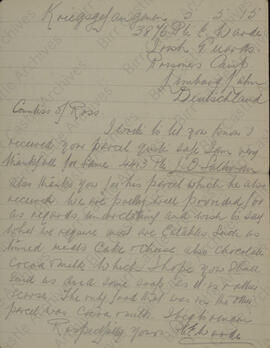 Kriegsgefangenen 3.5.15
3876 Pte E. Wards
Irish Guards
Prisoners Camp
Limburg Lahn
Deutschland
Countess of Ross
I wish to let you know I
received your parcel quite safe I am very
thankfull for same. 4443 Pte J. O Sullivan
also thanks you for his parcel which he also
received we are pretty well provided for
as regards underclothing and wish to say
what we require most are Eatables Such as
tinned meats Cake & cheese also chocolate
cocoa & milk Which I hope you Shall
send us and some soap as it is rather
scarce. The only food that was in the other
parcel was Cocoa & milk. I beg to remain
Respectfully yours